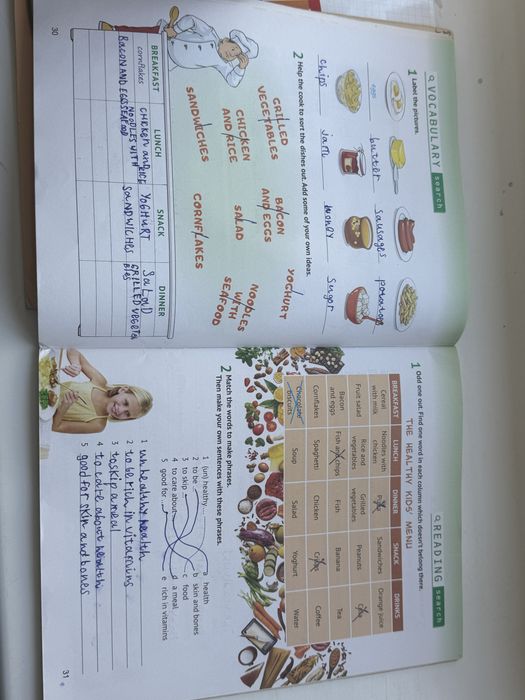 VOCABULARY search
1 Label the pictures.
eggs
butter
sausages
potatoes
chips
jam
honey
sugar
2 Help the cook to sort the dishes out. Add some of your own ideas.
GRILLED VEGETABLES
BACON AND EGGS
YOGHURT
CHICKEN AND RICE
SALAD
NOODLES WITH SEAFOOD
SANDWICHES
CORNFLAKES
BREAKFAST LUNCH SNACK DINNER
cornflakes
BACON AND EGGS
CHICKEN AND RICE
NOODLES WITH SEAFOOD
YOGHURT
SANDWICHES
SALAD
GRILLED VEGETABLES
30
READING search
1 Odd one out. Find one word in each column which doesn't belong there.
THE HEALTHY KIDS' MENU
BREAKFAST LUNCH DINNER SNACK DRINKS
Cereal with milk Noodles with chicken Sandwiches Orange juice
Fruit salad Rice and vegetables Grilled vegetables Peanuts
Bacon and eggs Fish and chips Fish Banana Tea
Cornflakes Spaghetti Chicken Crisps Coffee
Chocolate biscuits Soup Salad Yoghurt Water
2 Match the words to make phrases.
Then make your own sentences with these phrases.
1 (un) healthy... a health
2 to be... b skin and bones
3 to skip... c food
4 to care about... d a meal
5 good for... e rich in vitamins
1 unhealthy health
2 to be rich in vitamins
3 to skip a meal
4 to care about health
5 good for skin and bones
31